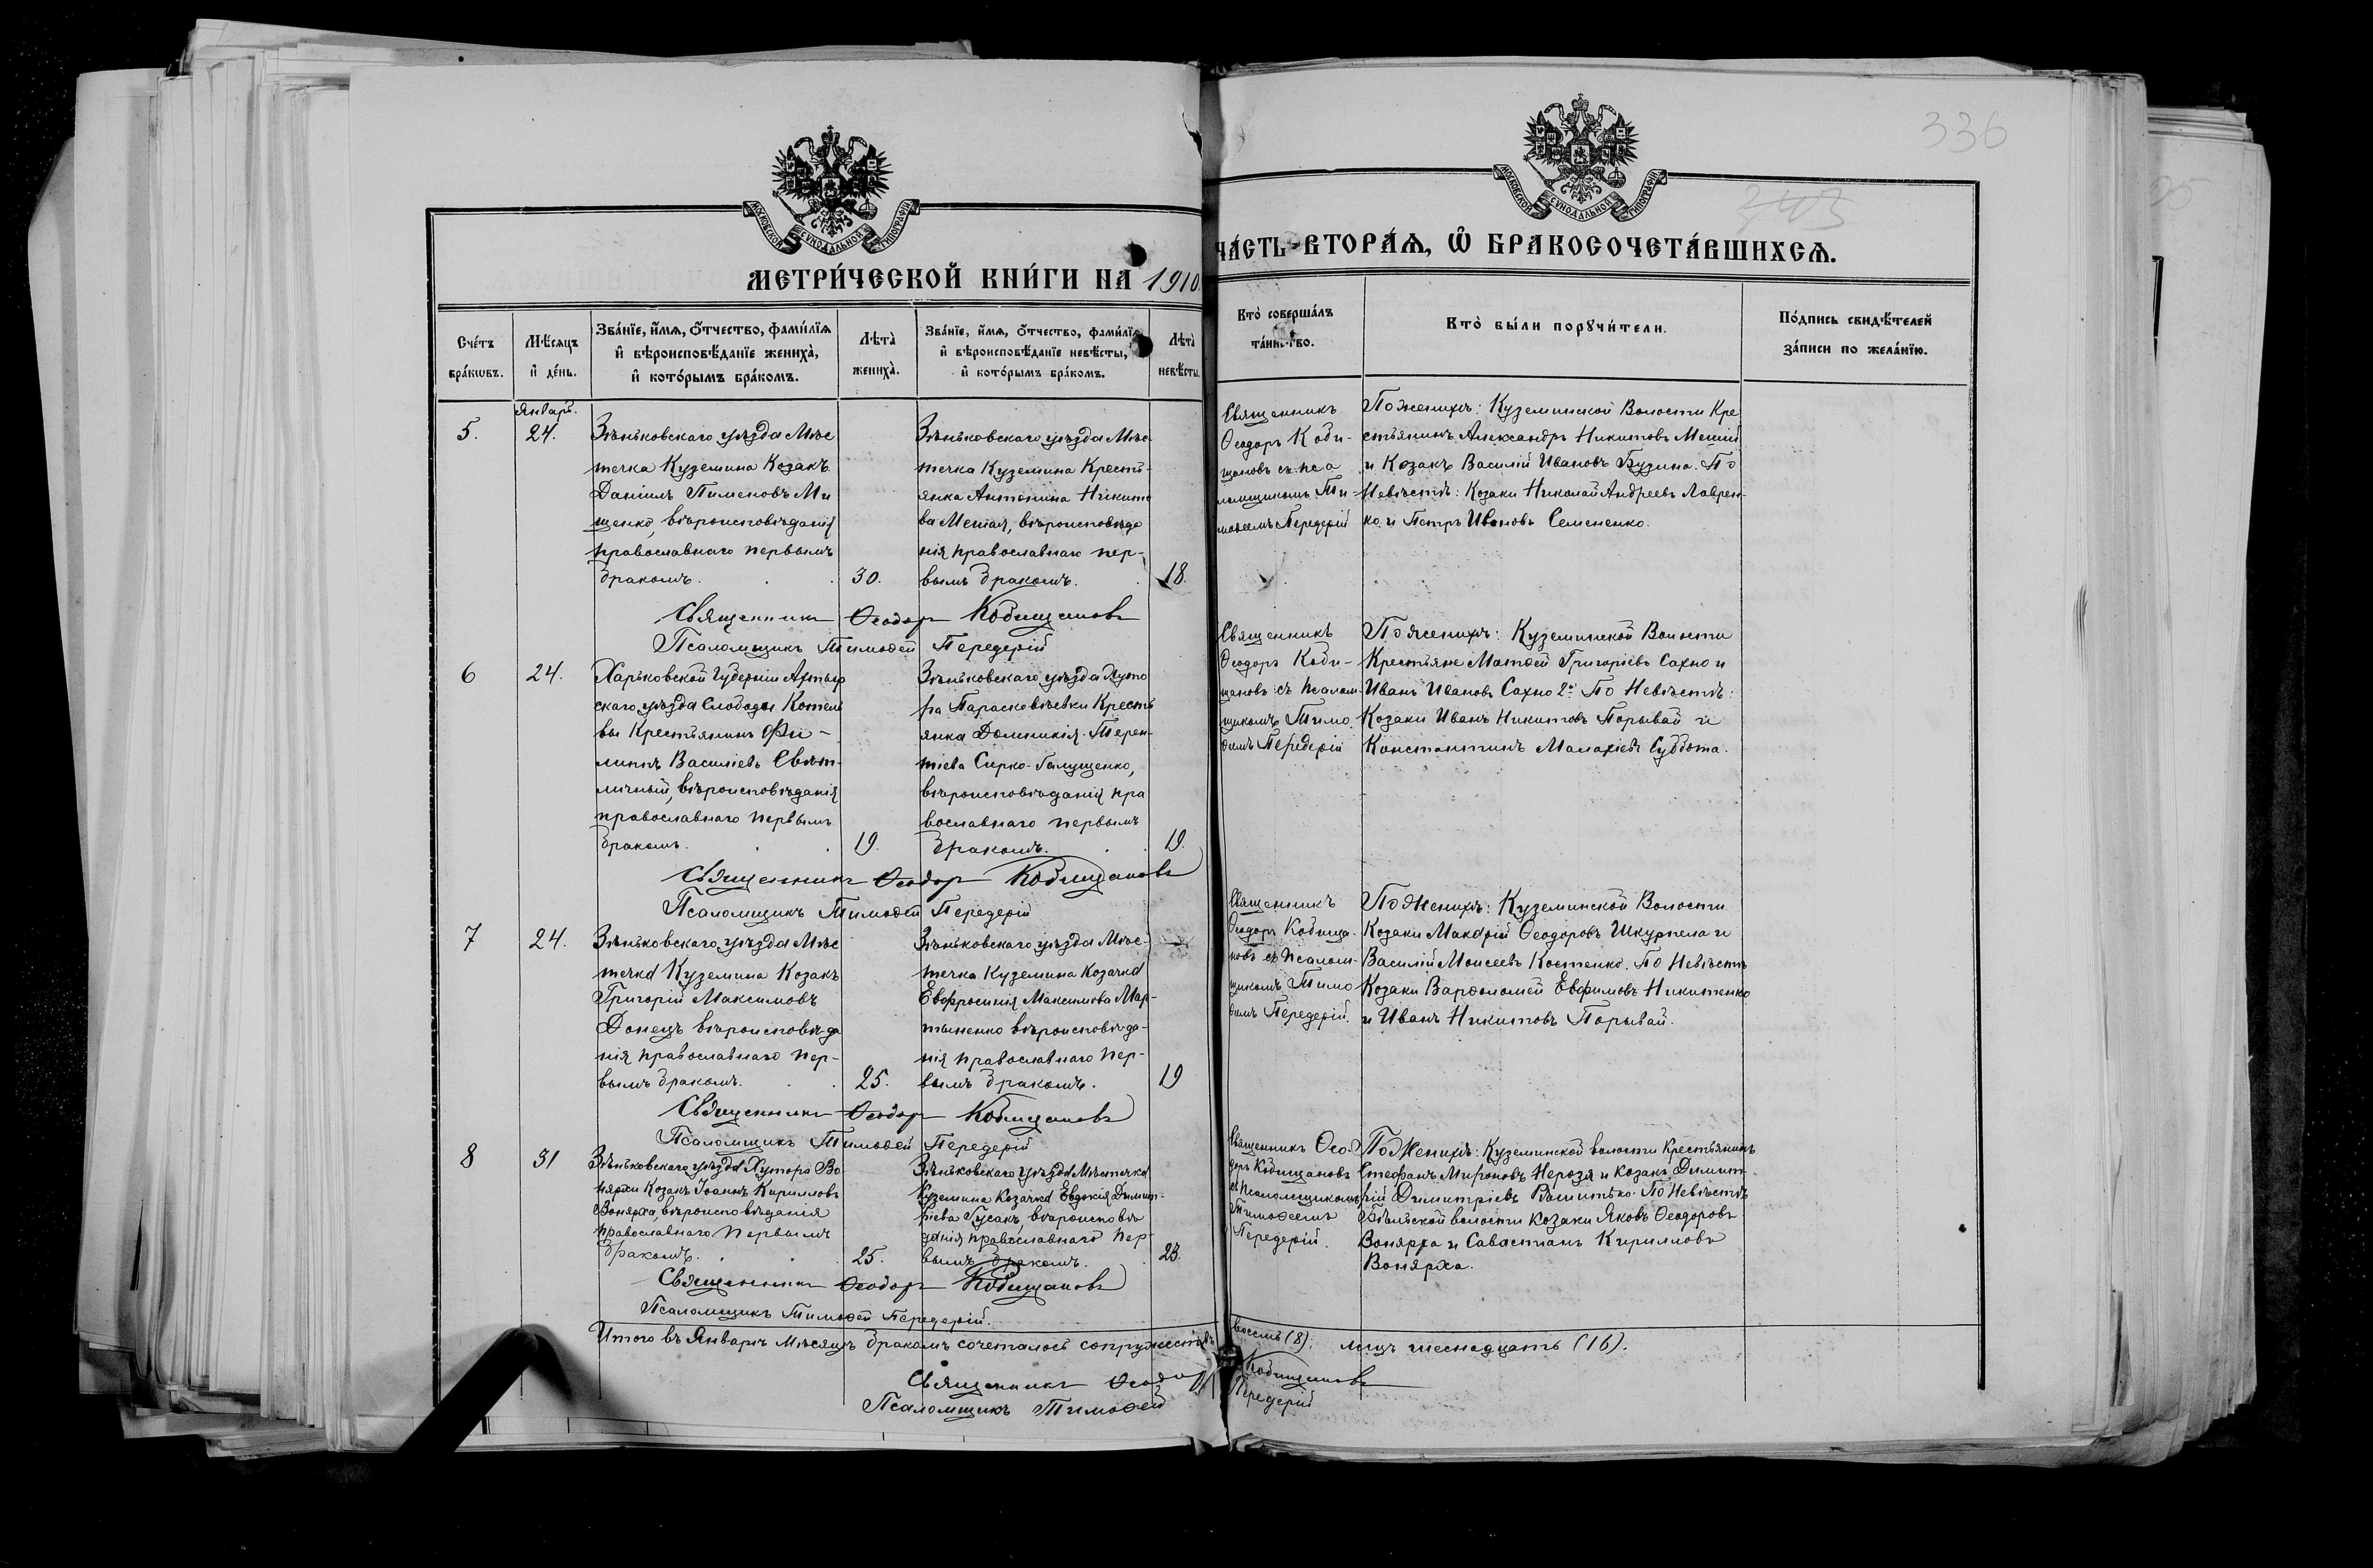 336
343
МОСКОВСКОЙ СѴНОДАЛЬНОЙ ТИПОГРАФІИ
МОСКОВСКОЙ СѴНОДАЛЬНОЙ ТИПОГРАФІИ
МЕТРИ́ЧЕСКОЙ КНИ́ГИ НА 1910
ЧА́СТЬ ВТОРА́Ѧ, Ѽ БРАКОСОЧЕТА́ВШИХСѦ.
Сче́тъ
бра́кѡвъ.
Мѣ́сѧцъ
и҆ де́нь.
Зва́нїе, и҆́мѧ, ѻ҆́тчество, фами́лїѧ
и҆ вѣроисповѣ́данїе жениха̀,
и҆ кото́рымъ бра́комъ.
Лѣта̀
жениха̀.
Зва́нїе, и҆́мѧ, ѻ҆́тчество, фами́лїѧ
и҆ вѣроисповѣ́данїе невѣ́сты,
и҆ кото́рымъ бра́комъ.
Лѣта̀
невѣ́сты.
Кто̀ соверша́лъ
та́инство.
Кто̀ бы́ли порꙋчи́тели.
По́дпись свидѣ́телей
за́писи по жела́нїю.
5.
Январь.
24.
Зѣньковскаго уѣзда Мѣс
течка Куземина Козакъ
Даніилъ Пименовъ Ми
щенко, вѣроисповѣданія
православнаго первымъ
бракомъ.
30.
Зѣньковскаго уѣзда Мѣс
течка Куземина Кресть-
янка Антонина Никито
ва Мешая, вѣроисповѣда
нія православнаго пер-
вымъ бракомъ.
18.
Священникъ
Ѳеодоръ Коби-
щановъ съ пса
ломщикомъ Ти-
моѳеемъ Передерій
По женихѣ: Куземинской Волости Кре
стьянинъ Александръ Никитовъ Мешій
и Козакъ Василій Ивановъ Бузина. По
Невѣстѣ: Козаки Николай Андреевъ Лаврен-
ко и Петръ Ивановъ Семененко.
Священникъ Ѳеодоръ Кобищановъ
Псаломщикъ Тимоѳей Передерій
6
24.
Харьковской Губерніи Ахтыр
скаго уѣзда Слободы Котель
вы Крестьянинъ Фи-
липпъ Василіевъ Свѣт-
личный, вѣроисповѣданія
православнаго первымъ
бракомъ.
19.
Зѣньковскаго уѣзда Хуто
ра Парасковѣевки Кресть
янка Домникія Терен-
тіева Сирко-Галущенко,
вѣроисповѣданія пра
вославнаго первымъ
бракомъ.
19.
Священникъ
Ѳеодоръ Коби-
щановъ съ Псалом-
щикомъ Тимо
ѳеемъ Передерій
По женихѣ: Куземинской Волости
Крестьяне Матѳей Григоріевъ Сахно и
Иванъ Ивановъ Сахно 2й По Невѣстѣ:
Козаки Иванъ Никитовъ Порывай и
Константинъ Малахіевъ Суббота.
Священникъ Ѳеодоръ Кобищановъ
Псаломщикъ Тимоѳей Передерій
7
24.
Зѣньковскаго уѣзда Мѣс
течка Куземина Козакъ
Григорій Максимовъ
Донецъ вѣроисповѣда
нія православнаго пер-
вымъ бракомъ.
25.
Зѣньковскаго уѣзда Мѣс-
течка Куземина Козачка
Евфросинія Максимова Мар-
тыненко вѣроисповѣда-
нія православнаго пер-
вымъ бракомъ.
19
Священникъ
Ѳеодоръ Кобища-
новъ съ Псалом-
щикомъ Тимо
ѳеемъ Передерій.
По Женихѣ: Куземинской Волости
Козаки Макарій Ѳеодоровъ Шкурпела и
Василій Моисеевъ Костенко. По Невѣстѣ
Козаки Варѳоломей Евфимовъ Никитенко
и Иванъ Никитовъ Порывай.
Священникъ Ѳеодоръ Кобищановъ
Псаломщикъ Тимоѳей Передерій
8
31
Зѣньковскаго уѣзда Хутора Во
нярхи Козакъ Іоаннъ Кирилловъ
Вонярха, вѣроисповѣданія
православнаго первымъ
бракомъ.
25.
Зѣньковскаго уѣзда Мѣстечка
Куземина Козачка Евдокія Димит-
ріева Гусакъ, вѣроисповѣ
данія православнаго пер-
вымъ бракомъ.
23.
Священникъ Ѳео-
доръ Кобищановъ
съ Псаломщикомъ
Тимоѳеемъ
Передерій.
По Женихѣ: Куземинской волости Крестьянинъ
Стефанъ Мироновъ Нерозя и козакъ Димит-
рій Димитріевъ По Невѣстѣ
Бѣльской волости козаки Яковъ Ѳеодоровъ
Вонярха и Савастіанъ Кирилловъ
Вонярха.
Священникъ Ѳеодоръ Кобищановъ
Псаломщикъ Тимоѳей Передерій.
Итого въ Январѣ мѣсяцѣ бракомъ сочеталось супружествъ восемь (8). лицъ шеснадцать (16).
Священникъ Ѳеодоръ Кобищановъ
Псаломщикъ Тимоѳей Передерій